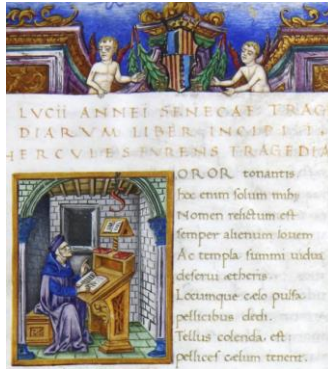 LVCII ANNEI SENECAE TRAG
DIARVM LIBER INCIPIT
HERCVLES FVRENS TRAGEDIA
OROR tonantis
hoc enim solum mihi
Nomen relictum est
semper alienum Iouem
Ac templa summi uidua
deserui ætheris
Locumque cælo pulsa
pellicibus dedi.
Tellus colenda est
pellices cælum tenent.